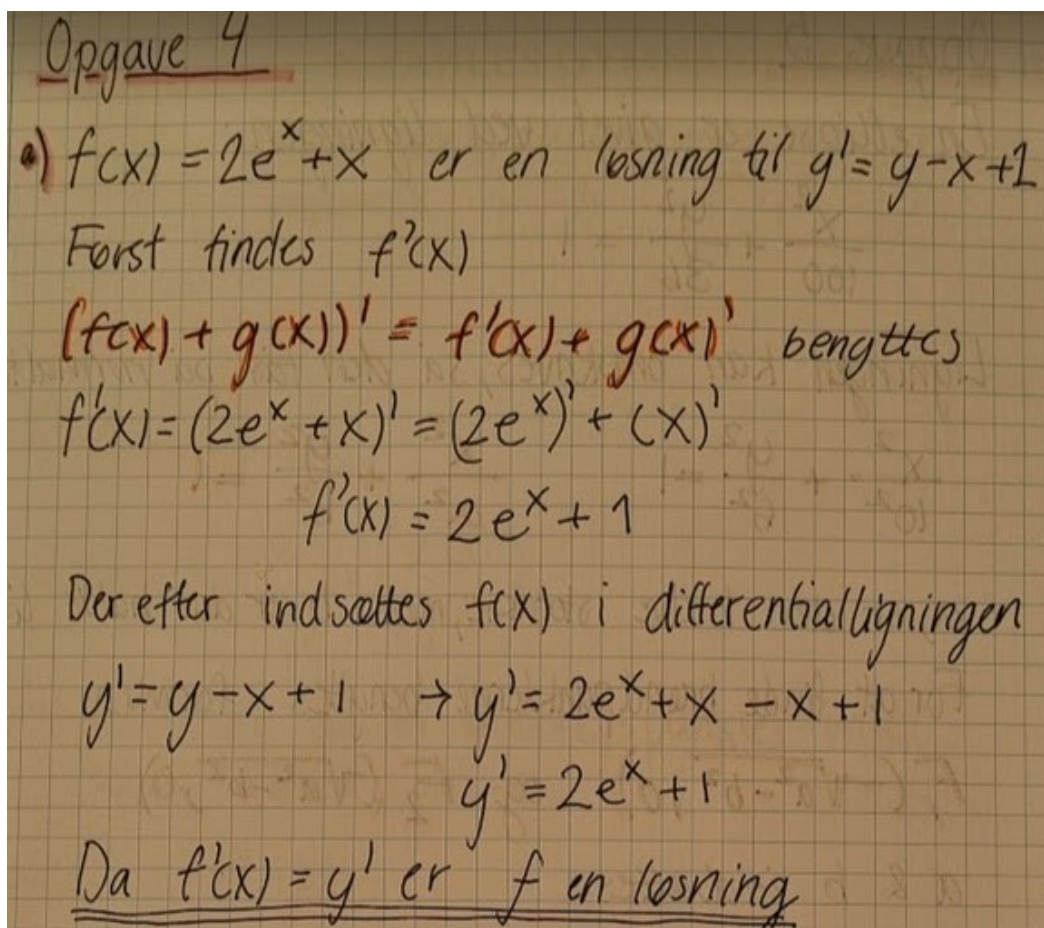 Opgave 4
a) f(x) = 2e^x + x er en løsning til y' = y - x + 1
Først findes f'(x)
(f(x) + g(x))' = f'(x) + g(x)' benyttes
f'(x) = (2e^x + x)' = (2e^x)' + (x)'
f'(x) = 2e^x + 1
Der efter indsættes f(x) i differentialligningen
y' = y - x + 1 → y' = 2e^x + x - x + 1
y' = 2e^x + 1
Da f'(x) = y' er f en løsning